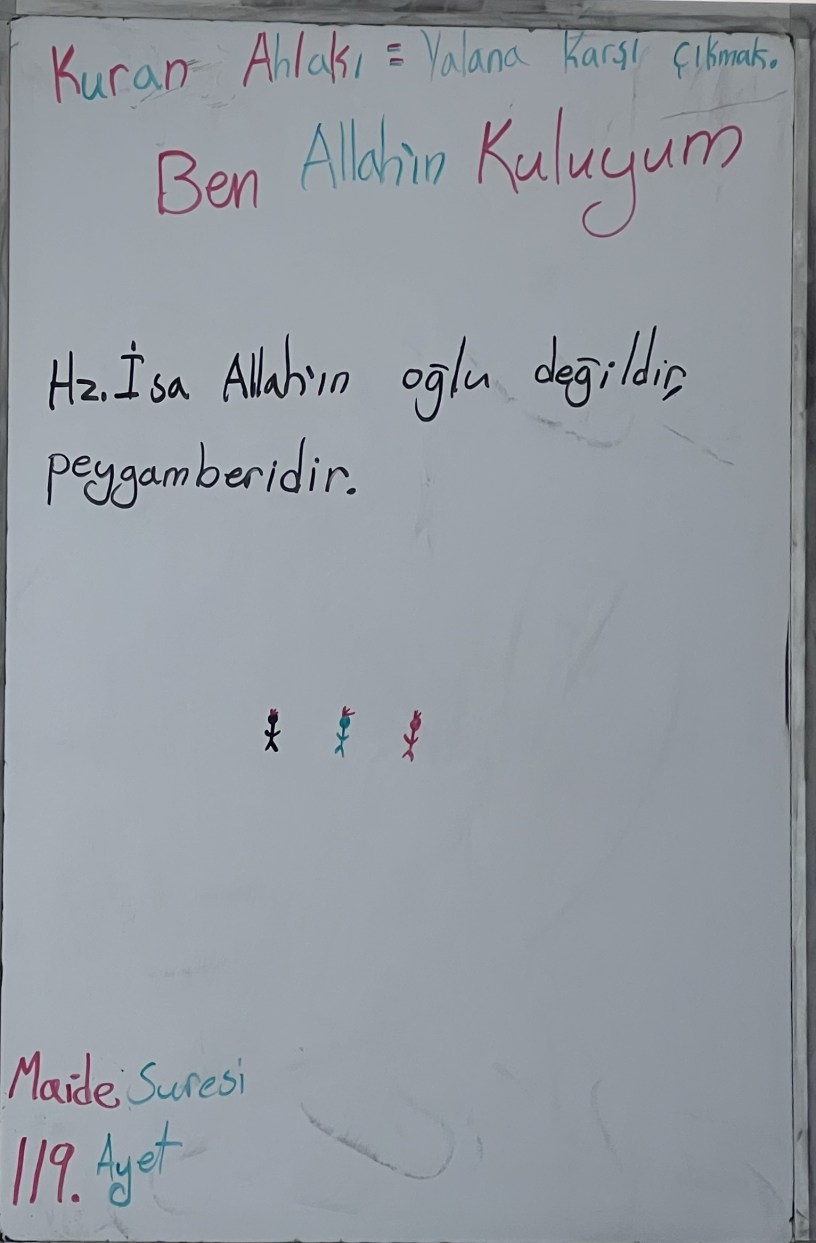 Kuran Ahlakı = Yalana Karşı Çıkmak.
Ben Allah'ın Kuluyum
Hz. İsa Allah'ın oğlu değildir,
peygamberidir.
Maide Suresi
119. Ayet